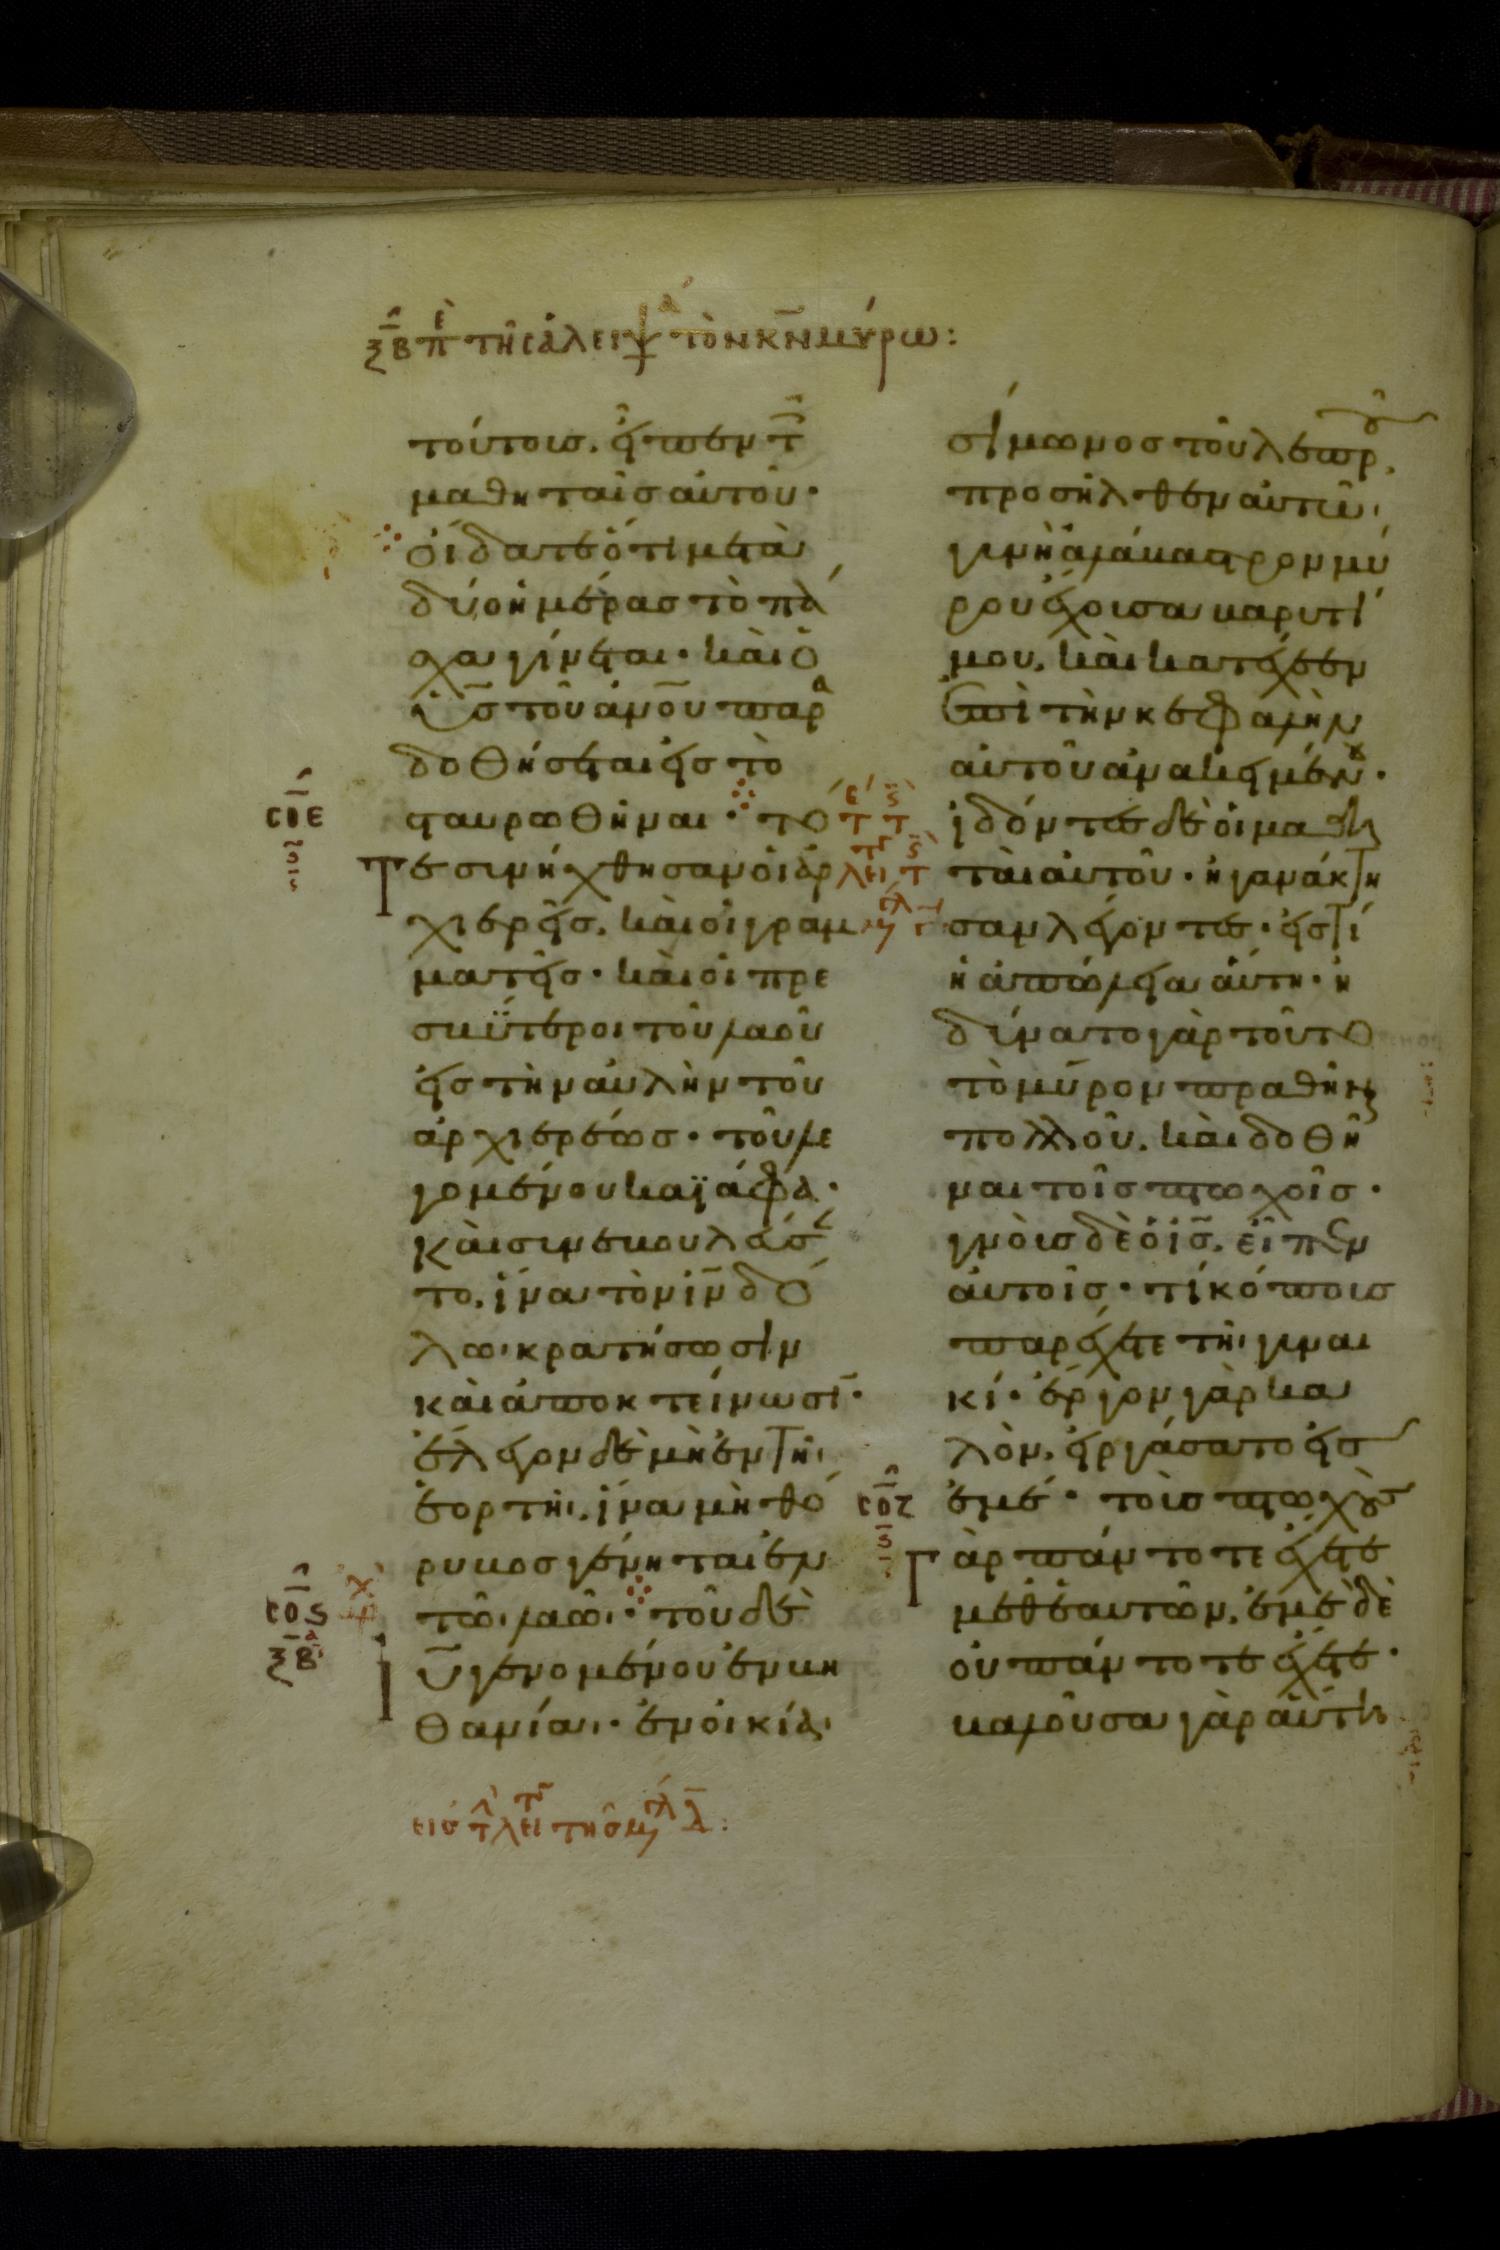 ξβ πε τῆς ἀλειψά τὸν κν μύρω:
τούτοισ. εἶπεν τ
μαθηταῖσ αὐτοῦ·
οἴδατε ὅτι μετὰ
δύο ἡμέρασ τὸ πά
χα γίνεται· καὶ ὁ
υσ τοῦ ανου παρα
δοθήσεται εἰσ τὸ
σταυρωθῆναι· τό
Τε συνήχθησαν οἱ ἀρ
χιερεῖσ. καὶ οἱ γραμ
ματεῖσ· καὶ οἱ πρε
σβύτεροι τοῦ λαοῦ
εἰσ τὴν αὐλὴν τοῦ
ἀρχιερέωσ· τοῦ λε
γομένου καϊάφα·
καὶ συνεβουλεύσ
το. ἵνα τὸν ιν δό
λω κρατήσωσιν
καὶ ἀποκτείνωσι·
ἔλεγον δὲ μὴ ἐν τῆ
ἑορτῆ. ἵνα μὴ θό
ρυβοσ γένηται ἐν
τῶ λαῶ· τοῦ δὲ
ιυ γενομένου ἐν βη
θανία· ἐν οἰκία
σίμωνοσ τοῦ λεπρ.
προσῆλθεν αὐτῶ
γυνὴ ἀλάβαστρον μύ
ρου ἔχουσα βαρυτί
μου. καὶ κατέχεεν
ἐπὶ τὴν κεφαλὴν
αὐτοῦ ἀνακειμένου·
ἰδόντεσ δὲ οἱ μαθη
ταὶ αὐτοῦ· ἠγανάκτη
σαν λέγοντεσ· εἰσ τί
ἡ ἀπώλεια αὕτη· ἠ
δύνατο γὰρ τοῦτο
τὸ μύρον πραθῆναι
πολλοῦ. καὶ δοθῆ
ναι τοῖσ πτωχοῖσ·
γνοὺσ δὲ ὁ ισ. εἶπεν
αὐτοῖσ· τί κόπουσ
παρέχετε τῆ γυναι
κί· ἔργον γὰρ κα
λὸν. εἰργάσατο εἰσ
ἐμέ· τοὺσ πτωχοὺσ
Γὰρ πάντοτε ἔχετε
μεθ ἑαυτῶν. ἐμὲ δὲ
οὐ πάντοτε ἔχετε·
βαλοῦσα γὰρ αὕτη
σοε
σος
ξβ
σοζ